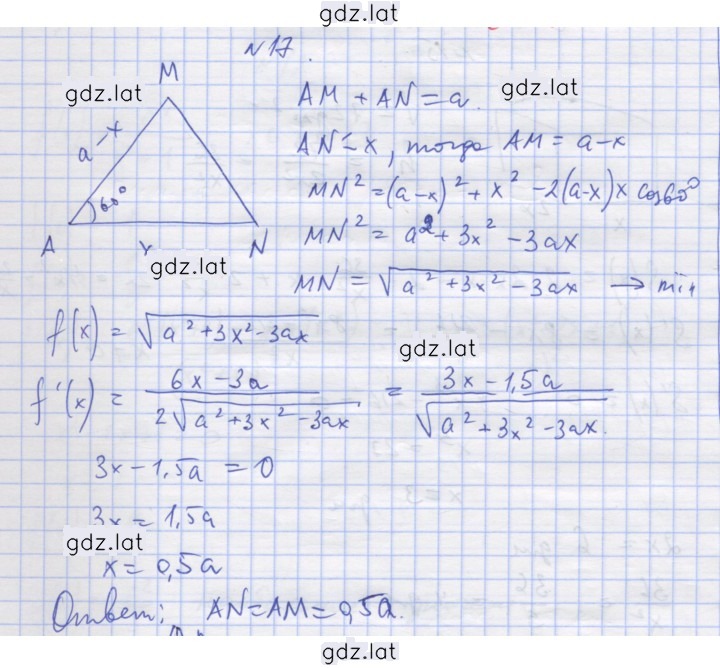 gdz.lat
N17.
M
gdz.lat
AM + AN = a.
gdz.lat
a - x
AN = x, тогда AM = a-x
60°
MN² = (a-x)² + x² - 2(a-x)x cos60°
A
x
N
MN² = a² + 3x² - 3ax
gdz.lat
MN = √(a² + 3x² - 3ax) → min
f(x) = √(a² + 3x² - 3ax)
gdz.lat
f'(x) = (6x - 3a)/(2√(a² + 3x² - 3ax)) = (3x - 1,5a)/(√(a² + 3x² - 3ax))
3x - 1,5a = 0
3x = 1,5a
gdz.lat
x = 0,5a
Ответ: AN = AM = 0,5a.
gdz.lat